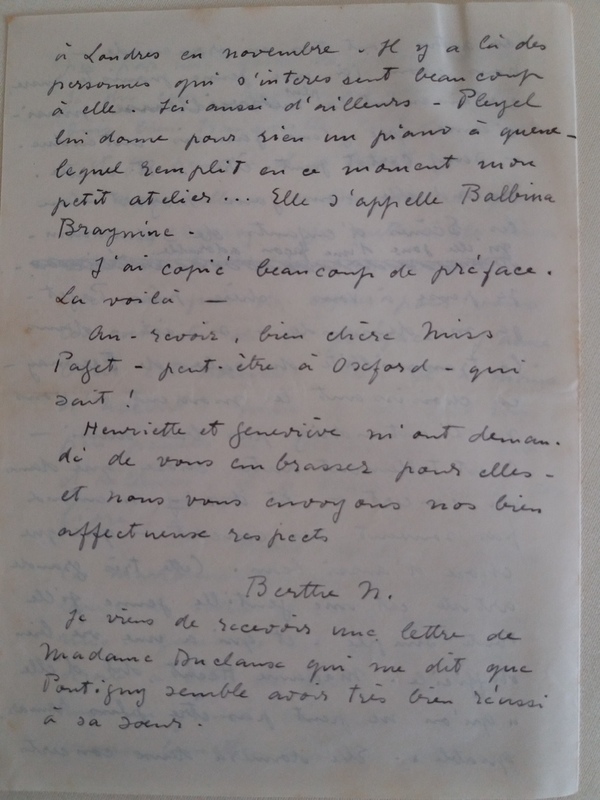 à Londres en novembre. Il y a là des
personnes qui s'interessent beaucoup
à elle. Ici aussi d'ailleurs - Pleyel
lui donne pour rien un piano à queue -
lequel remplit en ce moment mon
petit atelier... Elle s'appelle Balbina
Braynine.
J'ai copié beaucoup de préface.
La voilà —
Au-revoir, bien chère Miss
Paget - peut-être à Oxford - qui
sait !
Henriette et Geneviève m'ont deman-
dé de vous embrasser pour elles -
et nous vous envoyons nos bien
affectueux respects
Berthe N.
Je viens de recevoir une lettre de
Madame Duclaux qui me dit que
Pontigny semble avoir très bien réussi
à sa soeur.